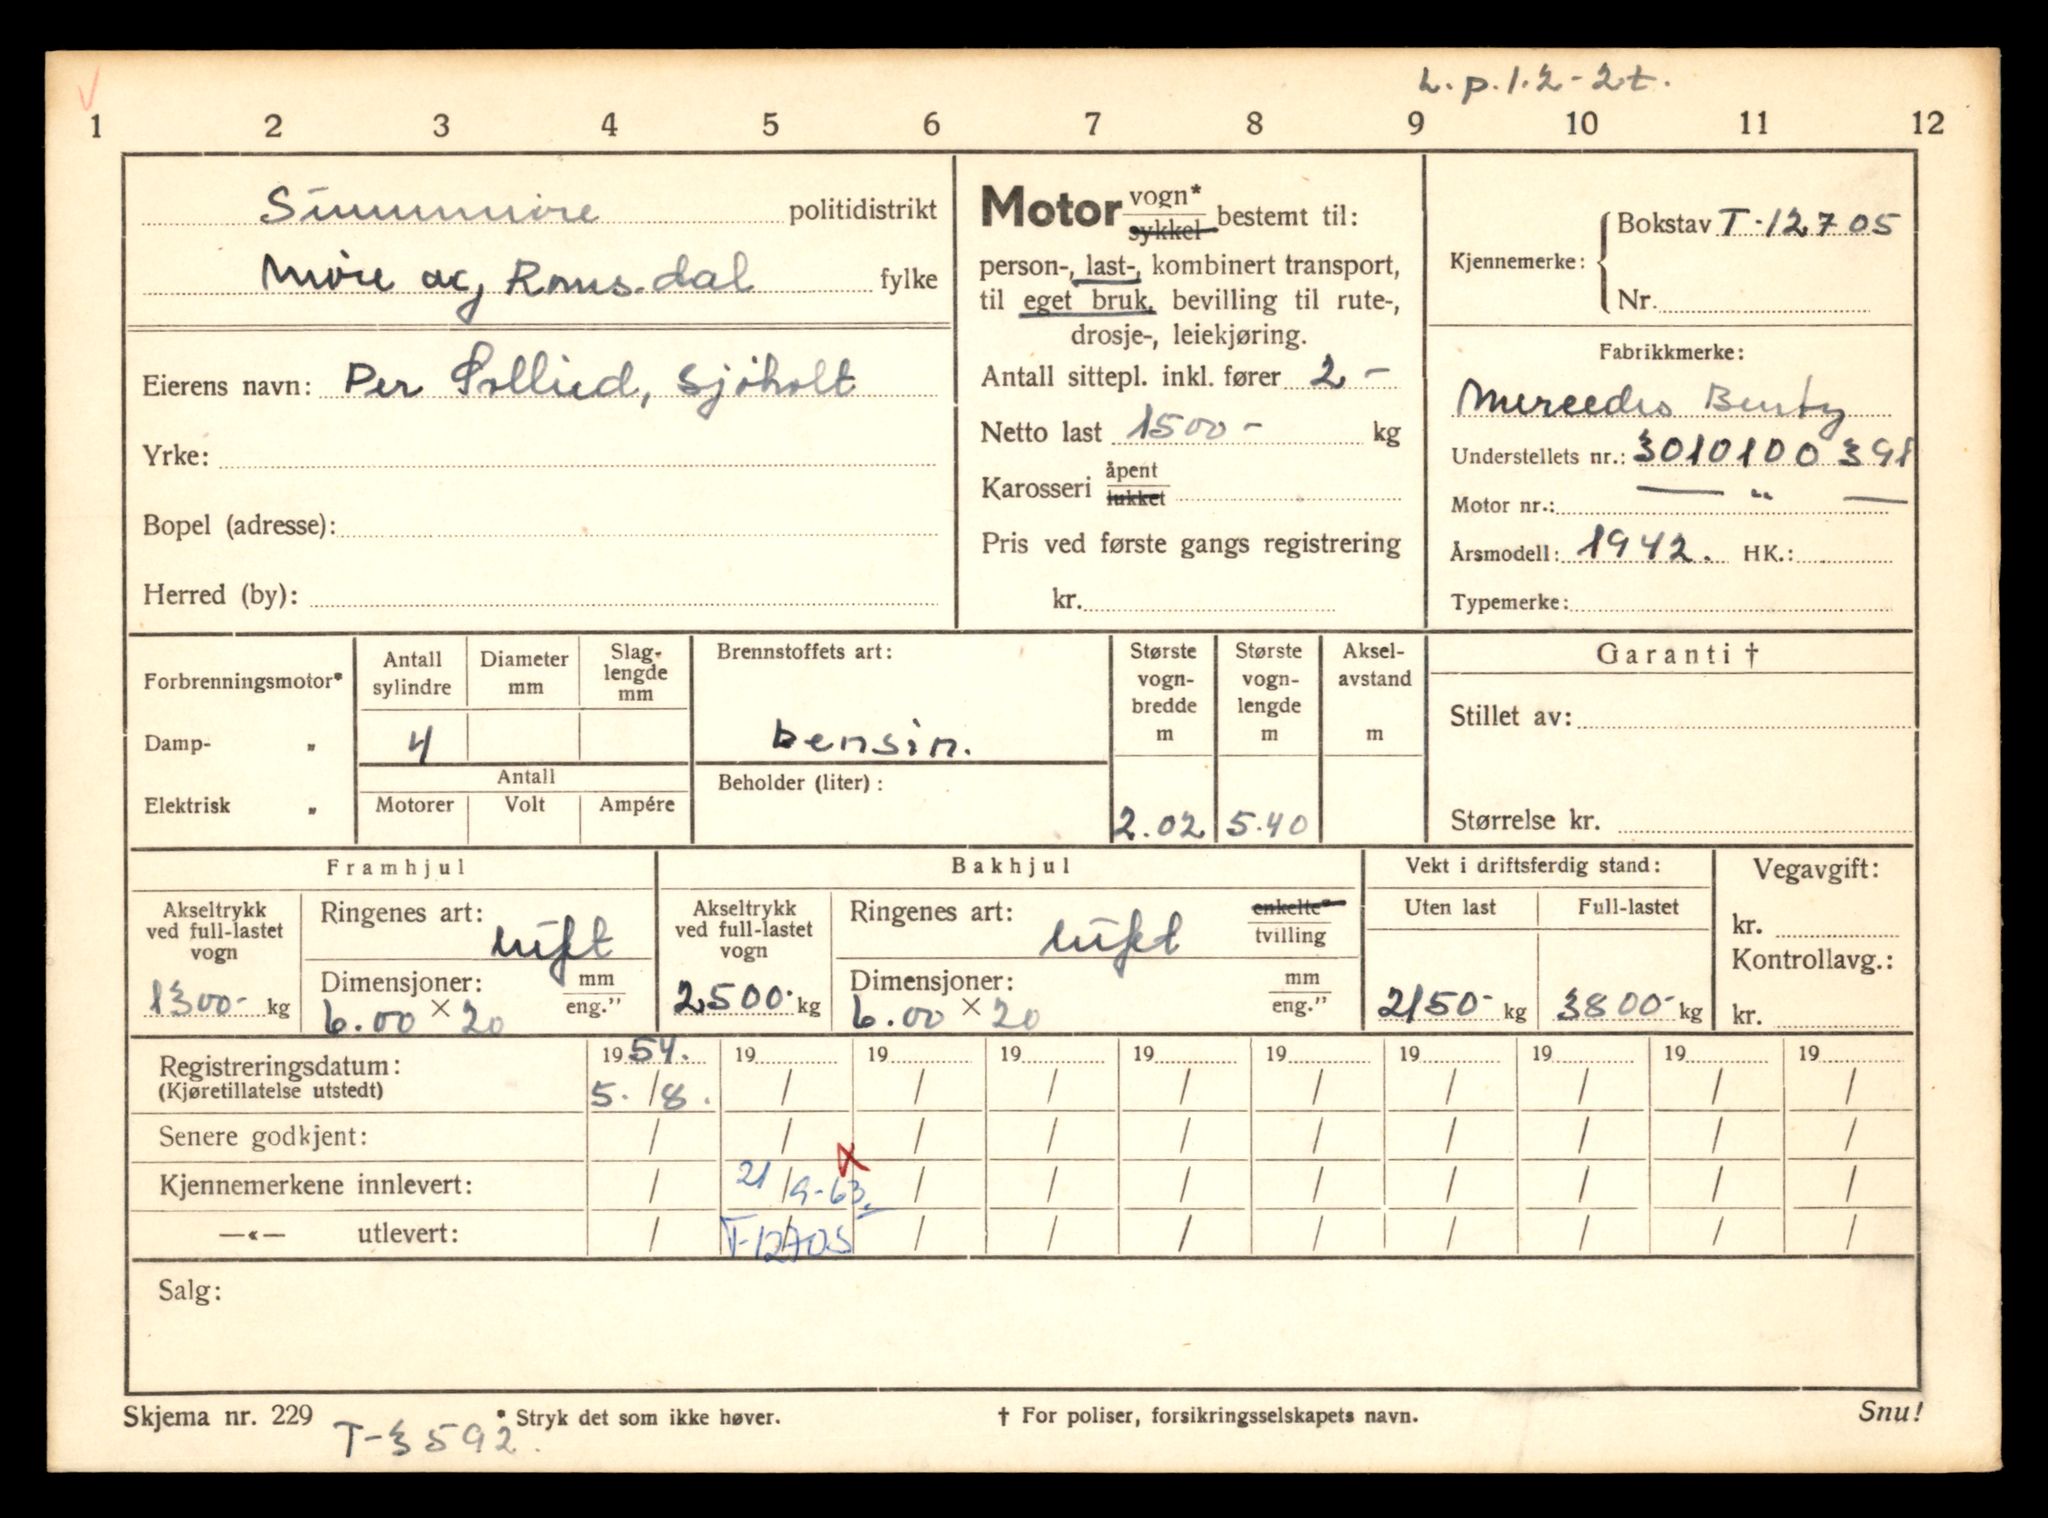 L.p.1.2-2t.
1 2 3 4 5 6 7 8 9 10 11 12
Sunnmøre politidistrikt
Møre og Romsdal fylke
Eierens navn: Per Sollied, Sjøholt
Yrke:
Bopel (adresse):
Herred (by):
Motor vogn* sykkel bestemt til:
person-, last-, kombinert transport,
til eget bruk, bevilling til rute-,
drosje-, leiekjøring.
Antall sittepl. inkl. fører 2 -
Netto last 1500 - kg
Karosseri åpent lukket
Pris ved første gangs registrering
kr.
Kjennemerke: Bokstav T-12705
Nr.
Fabrikkmerke:
Mercedes Bentz
Understellets nr.: 3010100391
Motor nr.: — " —
Årsmodell: 1942. HK.:
Typemerke:
Forbrenningsmotor*
Damp- "
Elektrisk "
Antall sylindre
Diameter mm
Slag-lengde mm
4
Antall
Motorer Volt Ampére
Brennstoffets art:
bensin.
Beholder (liter):
Største vogn-bredde m
2.02
Største vogn-lengde m
5.40
Aksel-avstand m
Garanti †
Stillet av:
Størrelse kr.
Framhjul
Akseltrykk ved full-lastet vogn
1300- kg
Ringenes art: luft
Dimensjoner: mm eng."
6.00 × 20
Bakhjul
Akseltrykk ved full-lastet vogn
2500- kg
Ringenes art: luft enkelte* tvilling
Dimensjoner: mm eng."
6.00 × 20
Vekt i driftsferdig stand:
Uten last Full-lastet
2150- kg 3800- kg
Vegavgift:
kr.
Kontrollavg.:
kr.
Registreringsdatum: 1954. 19 19 19 19 19 19 19 19 19
(Kjøretillatelse utstedt) 5. / 8. / / / / / / / / /
Senere godkjent: / / / / / / / / / /
Kjennemerkene innlevert: / 21/9-63. / / / / / / / /
—«— utlevert: / T-12705 / / / / / / / /
Salg:
Skjema nr. 229 * Stryk det som ikke høver. † For poliser, forsikringsselskapets navn. Snu!
T-3592.